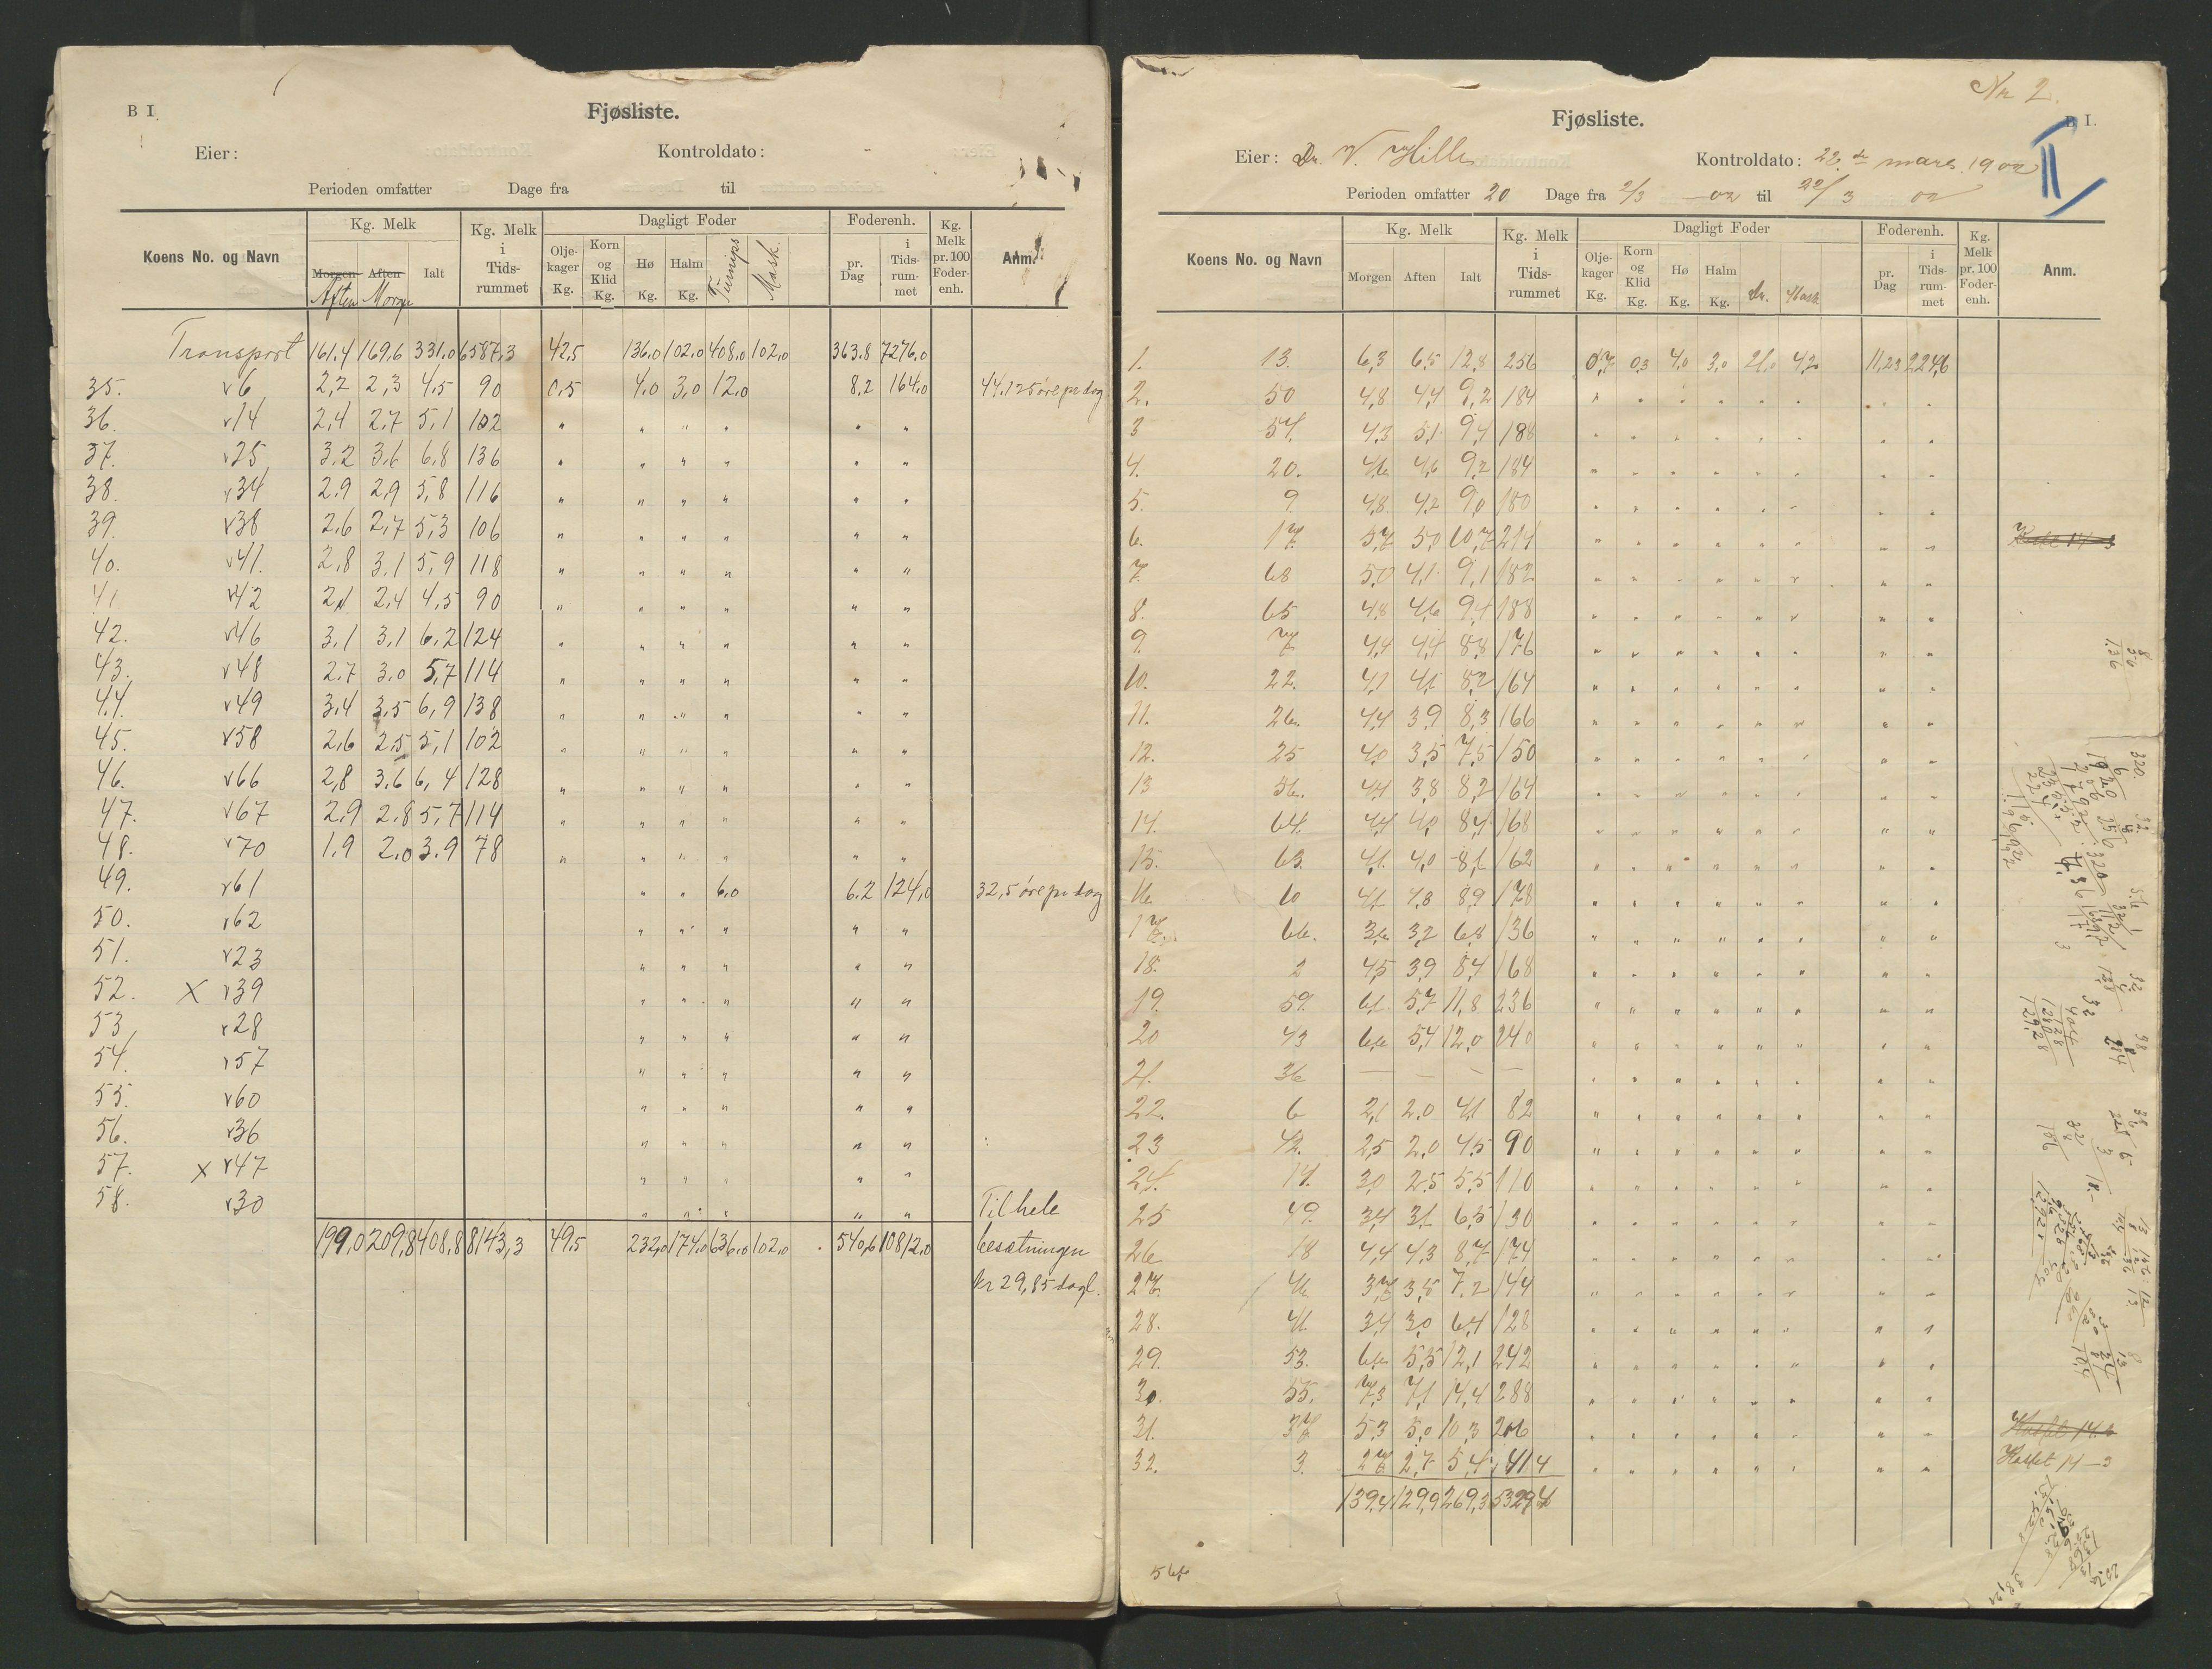 B I.
Fjøsliste.
Eier: Kontroldato:
Perioden omfatter Dage fra til
Koens No. og Navn Kg. Melk Kg. Melk i Tids-rummet Dagligt Foder Foderenh. Kg. Melk pr. 100 Foder-enh. Anm.
Morgen Aften Ialt Olje-kager Kg. Korn og Klid Kg. Hø Kg. Halm Kg. Turnips Mask. pr. Dag i Tids-rum-met
Aften Morgen
Transport 161,4 169,6 331,0 6587,3 42,5 136,0 102,0 408,0 102,0 363.8 7276,0
35. v6 2,2 2,3 4,5 90 0,5 4,0 3,0 12,0 8,2 164,0 44,125 øre pr dag
36. v14 2,4 2,7 5,1 102 " " " " " "
37. v25 3,2 3,6 6,8 136 " " " " " "
38. v34 2,9 2,9 5,8 116 " " " " " "
39. v38 2,6 2,7 5,3 106 " " " " " "
40. v41. 2,8 3,1 5,9 118 " " " " " "
41 v42 2,1 2,4 4,5 90 " " " " " "
42. v46 3,1 3,1 6,2 124 " " " " " "
43. v48 2,7 3,0 5,7 114 " " " " " "
44. v49 3,4 3,5 6,9 138 " " " " " "
45. v58 2,6 2,5 5,1 102 " " " " " "
46. v66 2,8 3,6 6,4 128 " " " " " "
47. v67 2,9 2,8 5,7 114 " " " " " "
48. v70 1,9 2,0 3,9 78 " " " " " "
49. v61 " " 6,0 6,2 124,0 32,5 øre pr dag
50. v62 " " " " "
51. v23 " " " " "
52. X v39 " " " " "
53 v28 " " " " "
54. v57 " " " " "
55. v60 " " " " "
56. v36 " " " " "
57. X v47 " " " " "
58. v30 " " " " " Til hele
199,0 209,8 408,8 8143,3 49,5 232,0 174,0 636,0 102,0 540,6 10812,0 besætningen
kr 29,85 dagl.
No 2.
B I.
II
Fjøsliste.
Eier: Dr. V. Hille Kontroldato: 22 de mars 1902
Perioden omfatter 20 Dage fra 2/3 02 til 22/3 02
Koens No. og Navn Kg. Melk Kg. Melk i Tids-rummet Dagligt Foder Foderenh. Kg. Melk pr. 100 Foder-enh. Anm.
Morgen Aften Ialt Olje-kager Kg. Korn og Klid Kg. Hø Kg. Halm Kg. Mask pr. Dag i Tids-rum-met
1. 13. 6,3 6,5 12,8 256 0,7 0,3 4,0 3,0 21,0 4,2 11,23 224,6
2. 50 4,8 4,4 9,2 184 " " " " " " " "
3 54. 4,3 5,1 9,4 188 " " " " " " " "
4. 20. 4,6 4,6 9,2 184 " " " " " " " "
5. 9. 4,8 4,2 9,0 180 " " " " " " " "
6. 17. 5,7 5,0 10,7 214 " " " " " " " "
7. 68 5,0 4,1 9,1 182 " " " " " " " "
8. 65 4,8 4,6 9,4 188 " " " " " " " "
9. 7 4,4 4,4 8,8 176 " " " " " " " "
10. 22. 4,1 4,1 8,2 164 " " " " " " " "
11. 26. 4,4 3,9 8,3 166 " " " " " " " "
12. 25 4,0 3,5 7,5 150 " " " " " " " "
13 56. 4,4 3,8 8,2 164 " " " " " " " "
14. 64. 4,4 4,0 8,4 168 " " " " " " " "
15. 63. 4,1 4,0 8,1 162 " " " " " " " "
16 10 4,1 4,8 8,9 178 " " " " " " " "
17. 66. 3,6 3,2 6,8 136 " " " " " " " "
18. 2 4,5 3,9 8,4 168 " " " " " " " "
19. 59. 6,1 5,7 11,8 236 " " " " " " " "
20 43 6,6 5,4 12,0 240 " " " " " " " "
21. 36 — — — — " " " " " " " "
22. 6 2,1 2,0 4,1 82 " " " " " " " "
23 42. 2,5 2,0 4,5 90 " " " " " " " "
24. 14. 3,0 2,5 5,5 110 " " " " " " " "
25 49. 3,4 3,1 6,5 130 " " " " " " " "
26 18 4,4 4,3 8,7 174 " " " " " " " "
27. 46 3,7 3,5 7,2 144 " " " " " " " "
28. 41. 3,4 3,0 6,4 128 " " " " " " " "
29. 53. 6,6 5,5 12,1 242 " " " " " " " "
30. 55. 7,3 7,1 14,4 288 " " " " " " " "
31. 37 5,3 5,0 10,3 206 " " " " " " " "
32. 3. 2,7 2,7 5,4 41,4 " " " " " " " " Kastet 14-3
139,4 129,9 269,3 5329,4